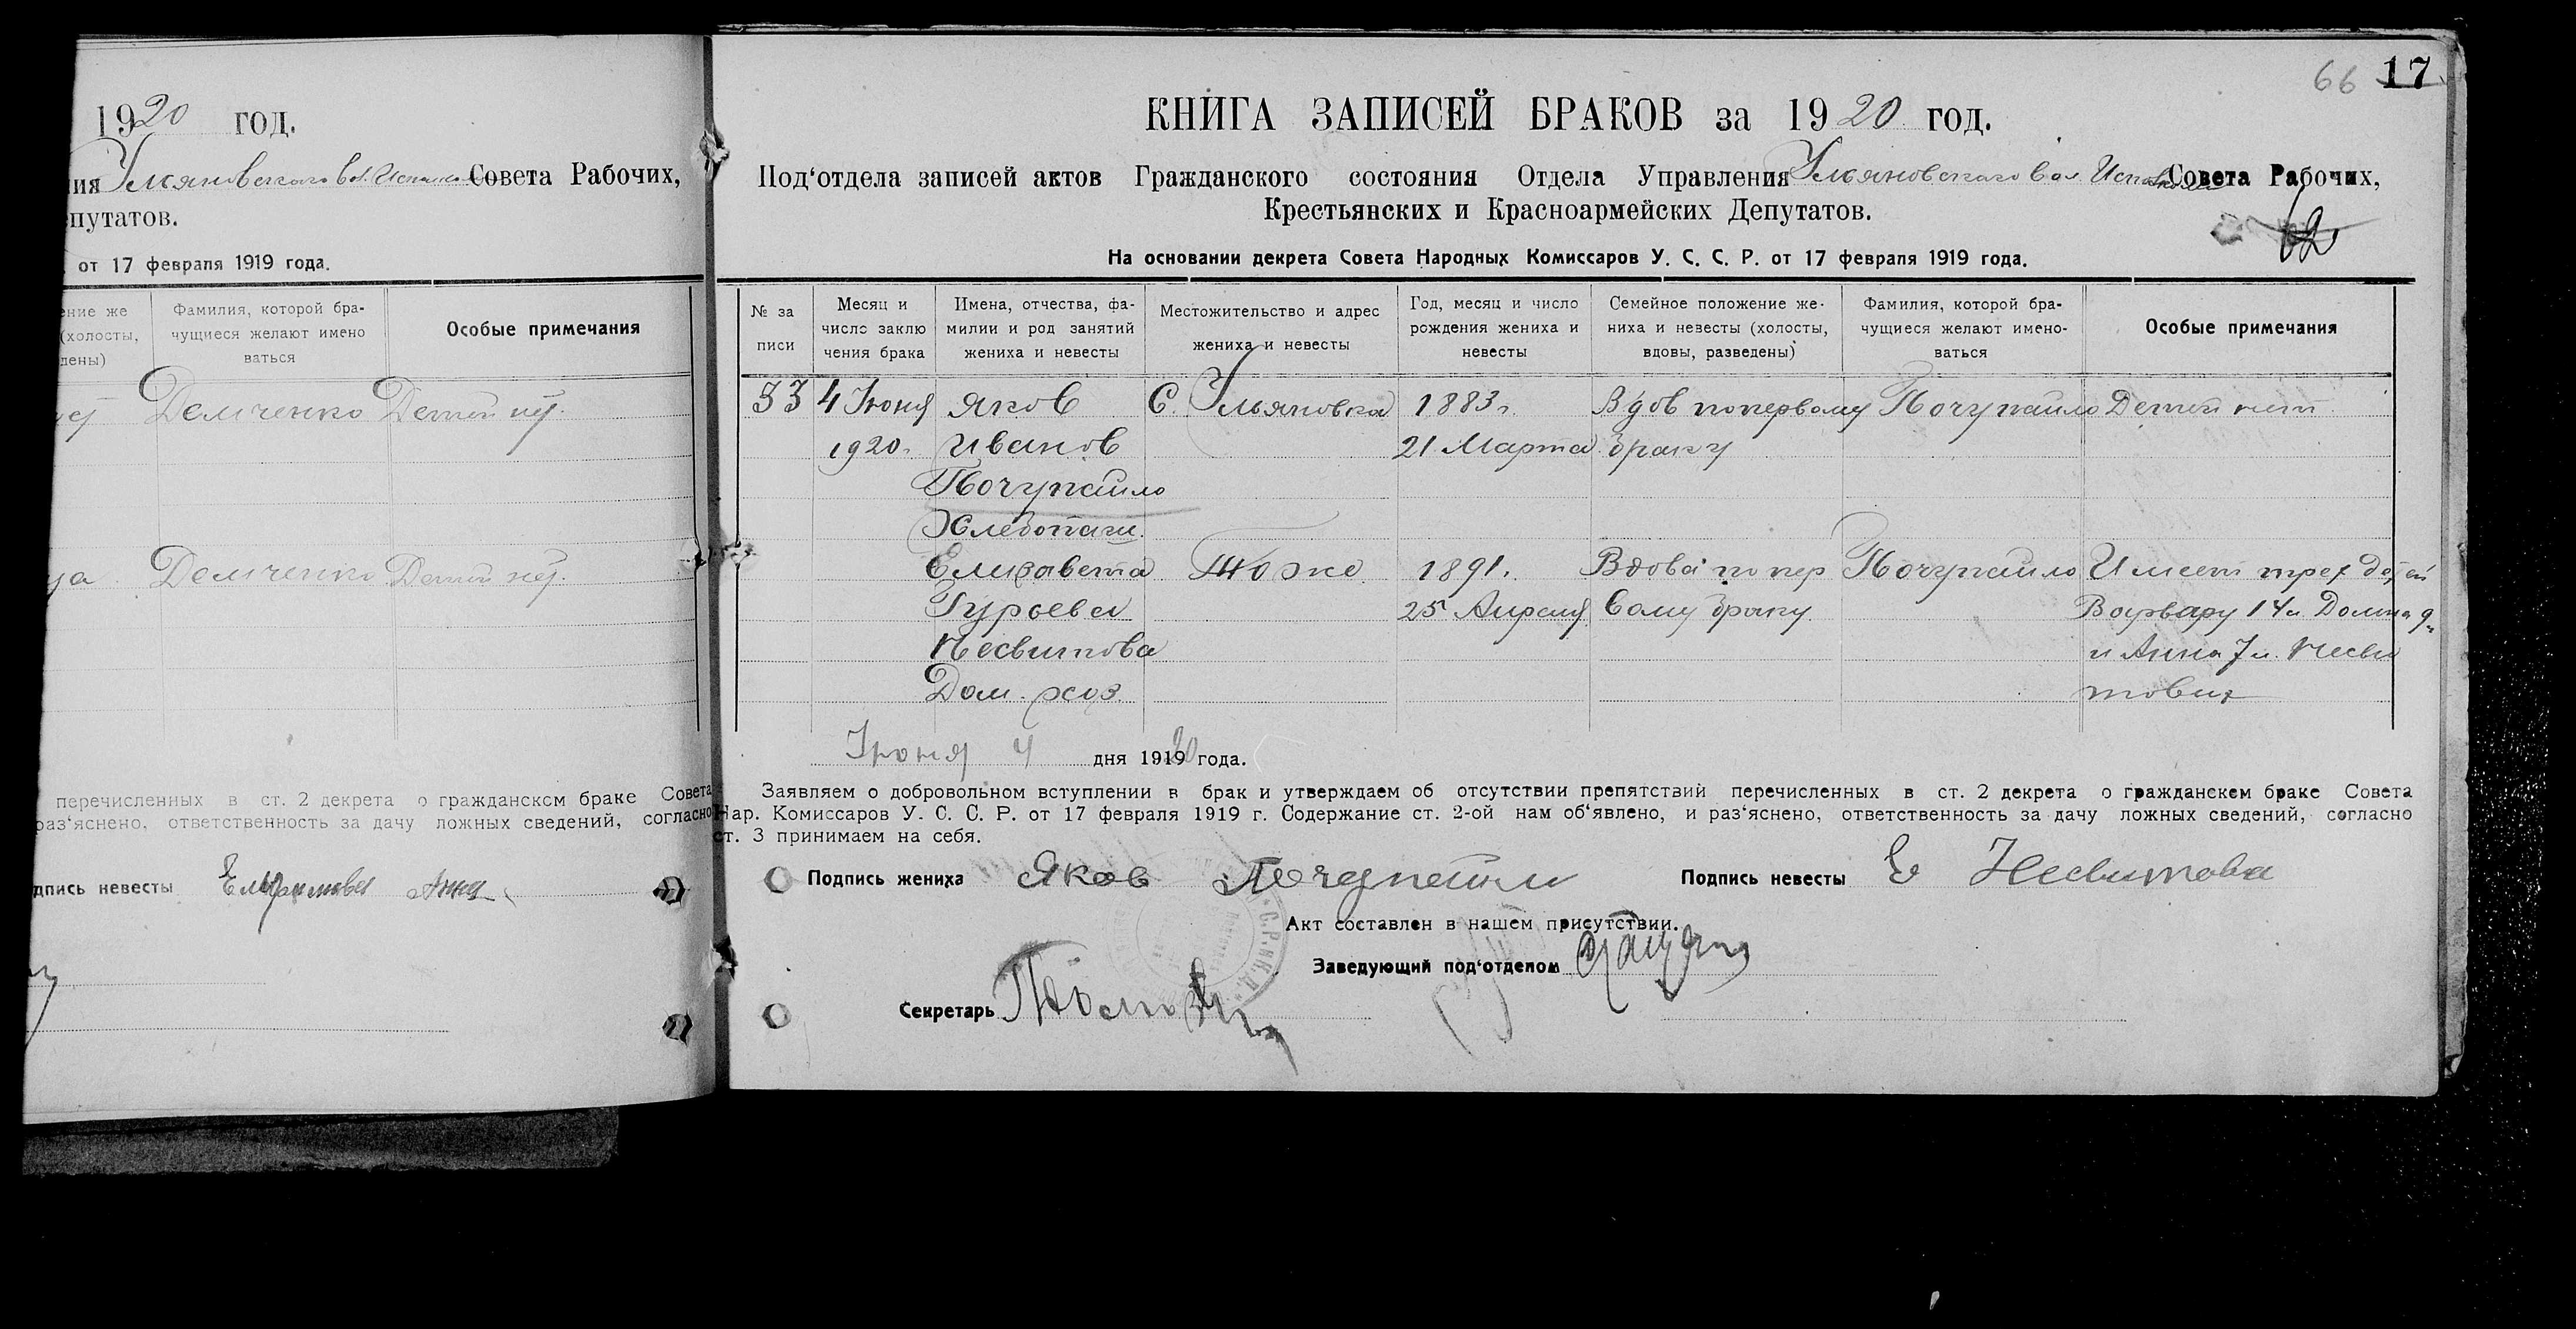 1920 год.
ия Ульяновского вол. Исполкома Совета Рабочих,
епутатов.
от 17 февраля 1919 года.
ение же
(холосты,
дены)
Фамилия, которой бра-
чущиеся желают имено
ваться
Особые примечания
Демченко Детей нет.
Демченко Детей нет.
перечисленных в ст. 2 декрета о гражданском браке Совета
раз‘яснено, ответственность за дачу ложных сведений, согласно
дпись невесты Анна
66 17
КНИГА ЗАПИСЕЙ БРАКОВ за 1920 год.
Под‘отдела записей актов Гражданского состояния Отдела Управления Ульяновского вол. Исполкома Совета Рабочих,
Крестьянских и Красноармейских Депутатов.
На основании декрета Совета Народных Комиссаров У. С. С. Р. от 17 февраля 1919 года.
№ за
писи
Месяц и
число заклю
чения брака
Имена, отчества, фа-
милии и род занятий
жениха и невесты
Местожительство и адрес
жениха и невесты
Год, месяц и число
рождения жениха и
невесты
Семейное положение же-
ниха и невесты (холосты,
вдовы, разведены)
Фамилия, которой бра-
чущиеся желают имено-
ваться
Особые примечания
33 4 Июня Яков С. Ульяновка 1883г. Вдов по первому Почупайло Детей нет
1920г. Иванов 21 Марта браку
Почупайло
Хлебопаш.
Елизавета Тоже 1891г. Вдова по пер Почупайло Имеет трех детей
Гурьева 25 Апреля вому браку. Варвару 14л. Домна 9л
Несвитова и Анна 7л. Несви
Дом. хоз. товых
Июня 4 дня 1920 года.
Заявляем о добровольном вступлении в брак и утверждаем об отсутствии препятствий перечисленных в ст. 2 декрета о гражданскем браке Совета
Нар. Комиссаров У. С. С. Р. от 17 февраля 1919 г. Содержание ст. 2-ой нам об‘явлено, и раз‘яснено, ответственность за дачу ложных сведений, согласно
ст. 3 принимаем на себя.
Подпись жениха Яков Почупайло Подпись невесты Е Несвитова
Акт составлен в нашем присутствии.
Заведующий под‘отделом
Секретарь